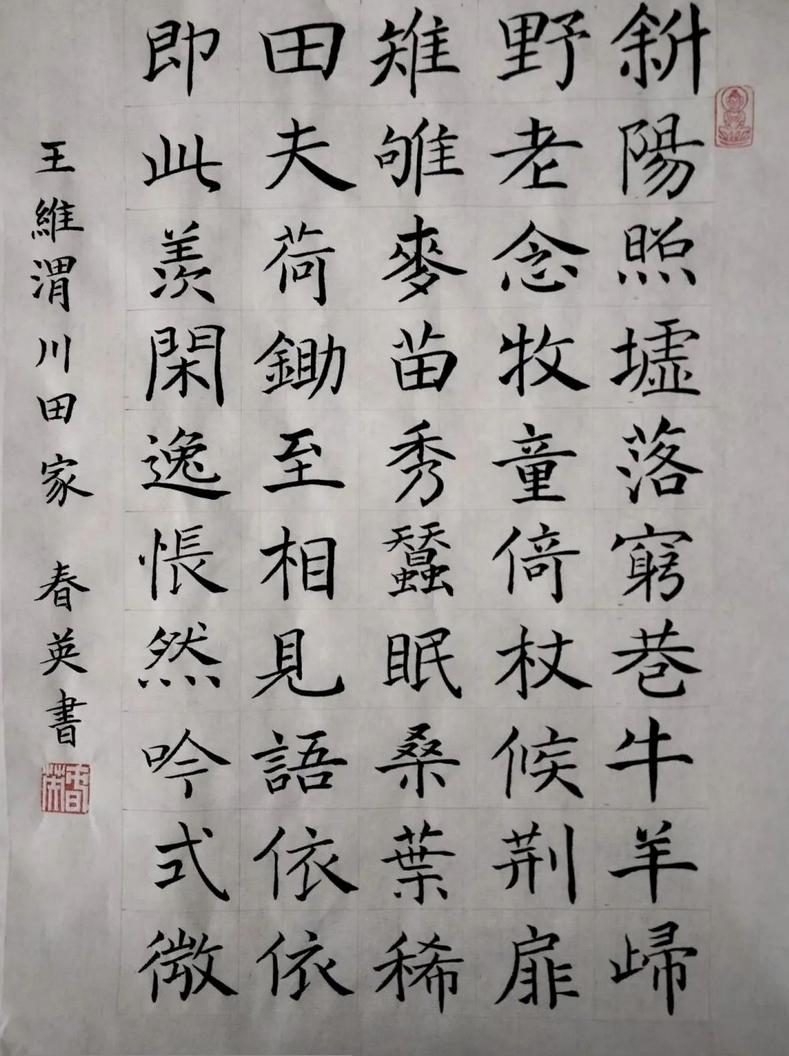 斜陽照墟落窮巷牛羊歸
野老念牧童倚杖候荆扉
雉雊麥苗秀蠶眠桑葉稀
田夫荷鋤至相見語依依
即此羨閑逸悵然吟式微
王維渭川田家 春英書